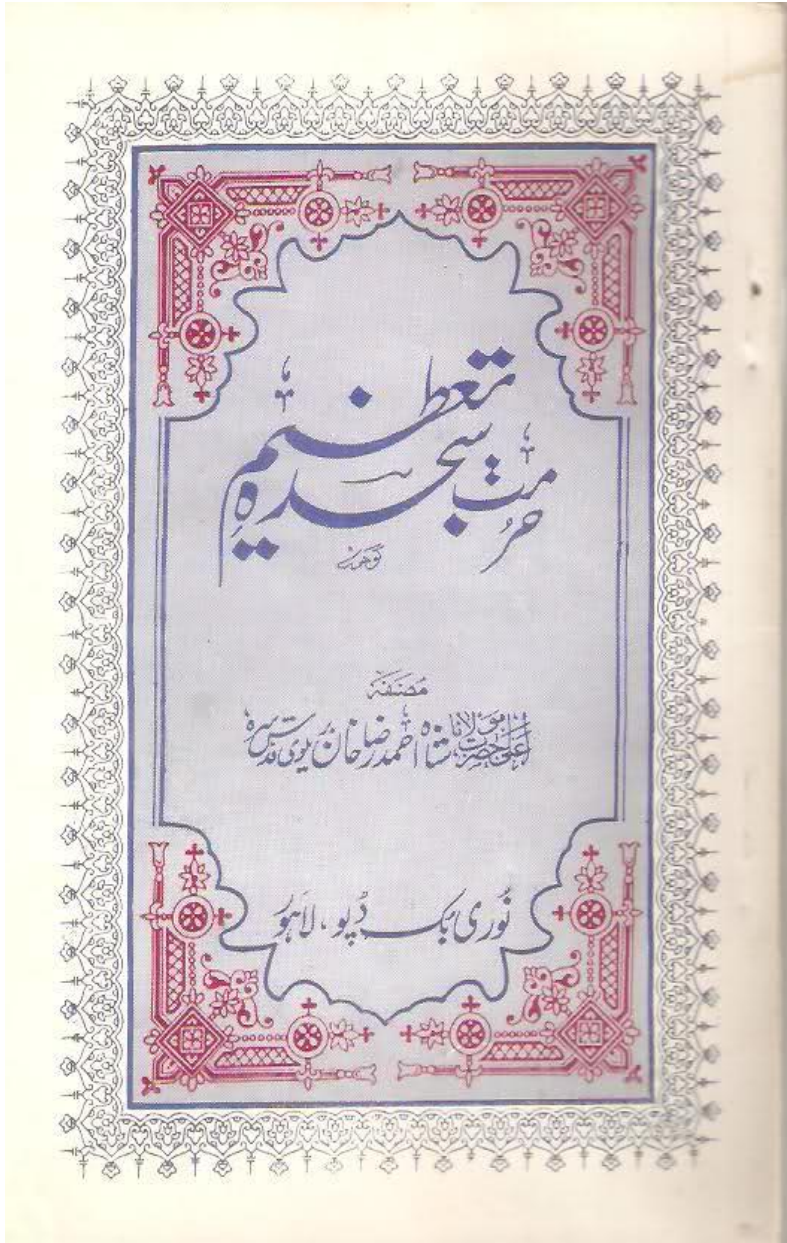 حرمت سجدہ تعظیم
گوھر
مصنفہ
اعلیٰحضرت مولانا شاہ احمد رضا خان بریلوی قدس سرہ
نوری بک ڈپو، لاہور